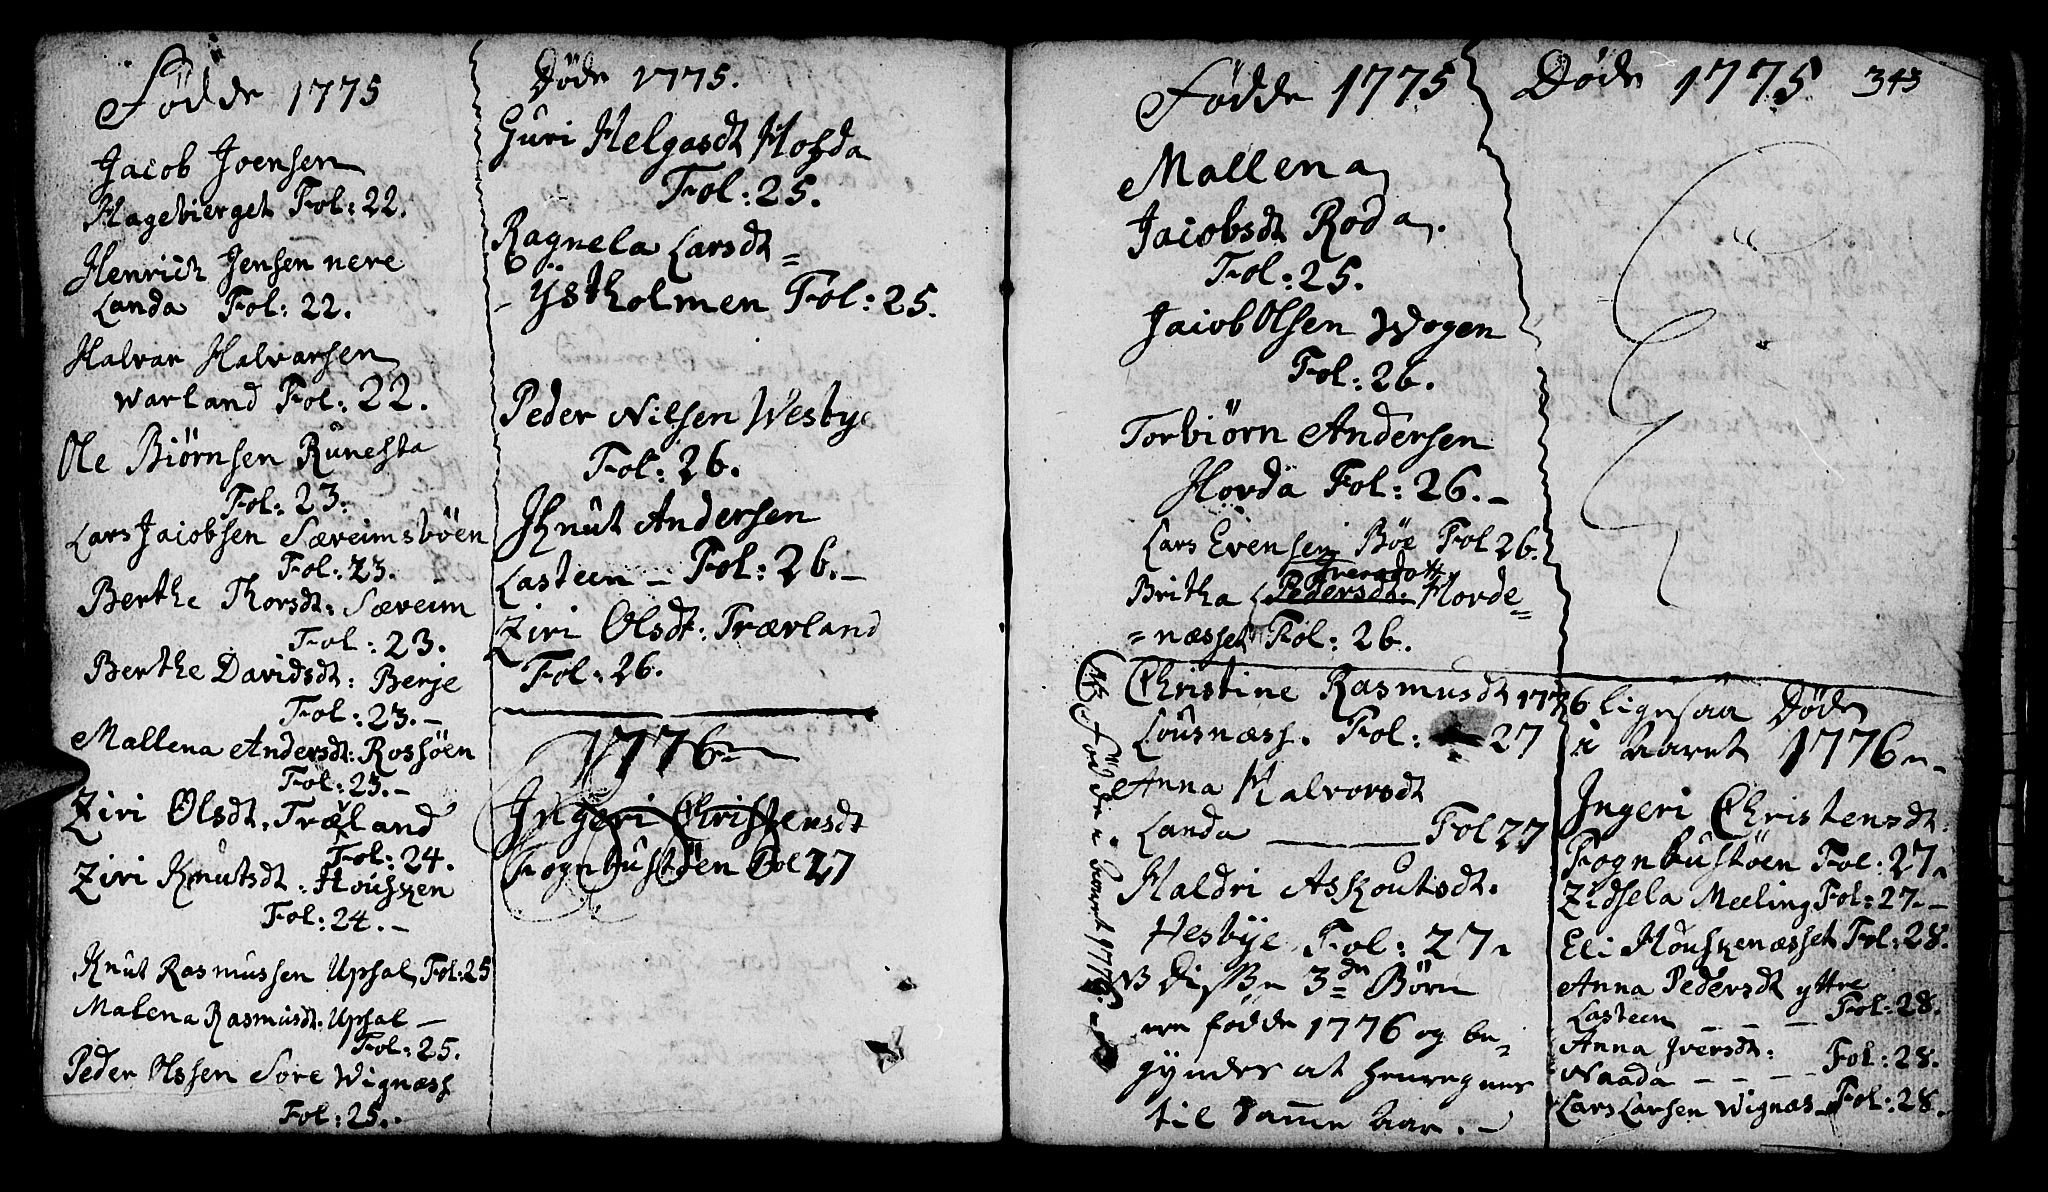 Fødde 1775
Jacob Joensen
Hagebierget Fol: 22.
Henrich Jensen nere
Landa Fol: 22.
Halvar Halvarsen
Warland Fol: 22.
Ole Biørnsen Runesta
Fol: 23.
Lars Jacobsen Særeimsbøen
Fol: 23.
Berthe Thorsdt: Særeim
Fol: 23.
Berthe Davidsdt: Berje
Fol: 23.-
Mallena Andersdt: Rossøen
Fol: 23.-
Ziri Olsdt. Træland
Fol: 24.
Ziri Knutsdt: Housken
Fol: 24.-
Knut Rasmussen Uphal Fol: 25
Malena Rasmusdt. Uphal -
Fol: 25.
Peder Olssen Sore Wignæss
Fol: 25.-
Døde 1775.
Guri Helgasdt Hohda
Fol: 25.
Ragnela Larsdt =
- Ystholmen Fol: 25.
Peder Nilsen Wesbye
Fol: 26.
Knut Andersen
Lasteen - Fol: 26.-
Ziri Olsdt: Trærland
Fol: 26.
1776
Ingeri Christensdt
Fognbustøen Fol 27
Fødde 1775
Mallena
Jacobsdt Roda.
Fol: 25.
Jacob Olsen Wogen
Fol: 26.
Torbiørn Andersen
Horda Fol: 26.-
Lars Evensen Bøe Fol 26.
Iversdott
Britha Pedersdt. Horde=
=næsset Fol: 26.
Christine Rasmusdt 1776
Lousnæss. Fol: 27
Anna Halvorsdt
Landa - Fol 27
Haldri Askoutsdt.
Hesbye Fol: 27
NB Disse 3de Børn
ere fødde 1776 og be-
gyndes at henregnes
til samme Aar.-
NB Fødde i Aaret 1776.
Døde 1775 343
ligesaa Døde
i Aaret 1776
Ingeri Christensdt:
Fognbustøen Fol: 27
Zidsela Meeling Fol: 27.-
Eli Houskenæsset Fol: 28.
Anna Pedersdt yttre
Lasteen - - - Fol: 28.
Anna Iversdt:
Naada - - - - Fol: 28.
Lars Larsen Wignæs - Fol: 28.